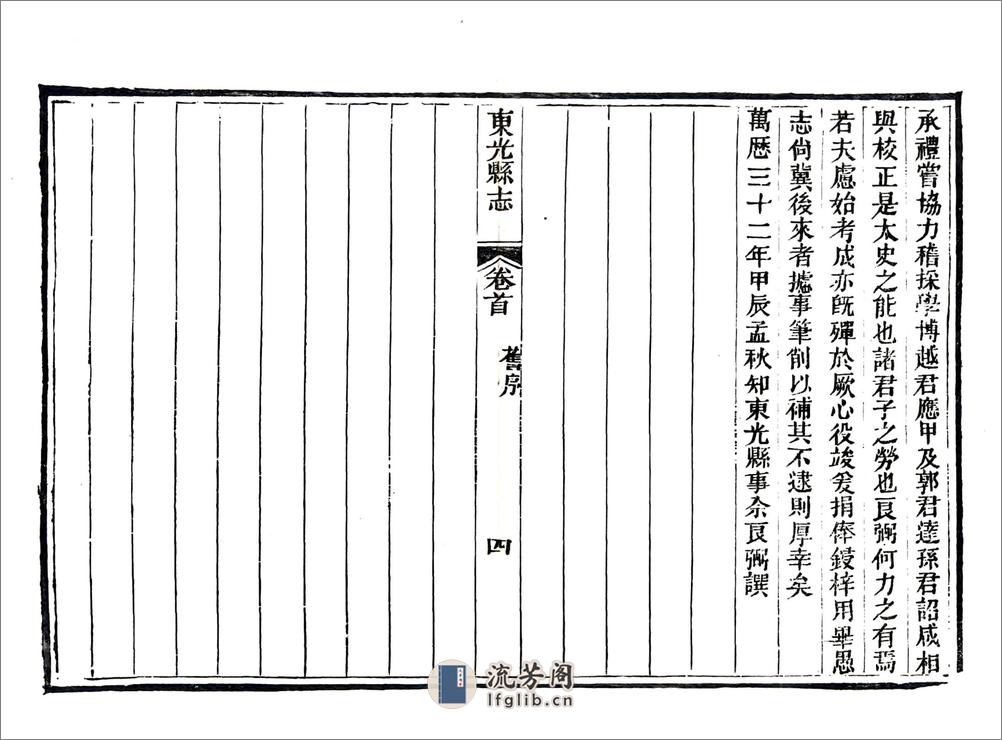 承禮嘗協力稽採學博越君應甲及郭君達孫君詔咸相
與校正是太史之能也諸君子之勞也良弼何力之有焉
若夫慮始考成亦既殫於厥心役竣爰捐俸鋟梓用畢愚
志尙冀後來者攄事筆削以補其不逮則厚幸矣
萬歷三十二年甲辰孟秋知東光縣事余良弼譔
東光縣志
卷首
舊序
四
流芳阁
lfglib.cn